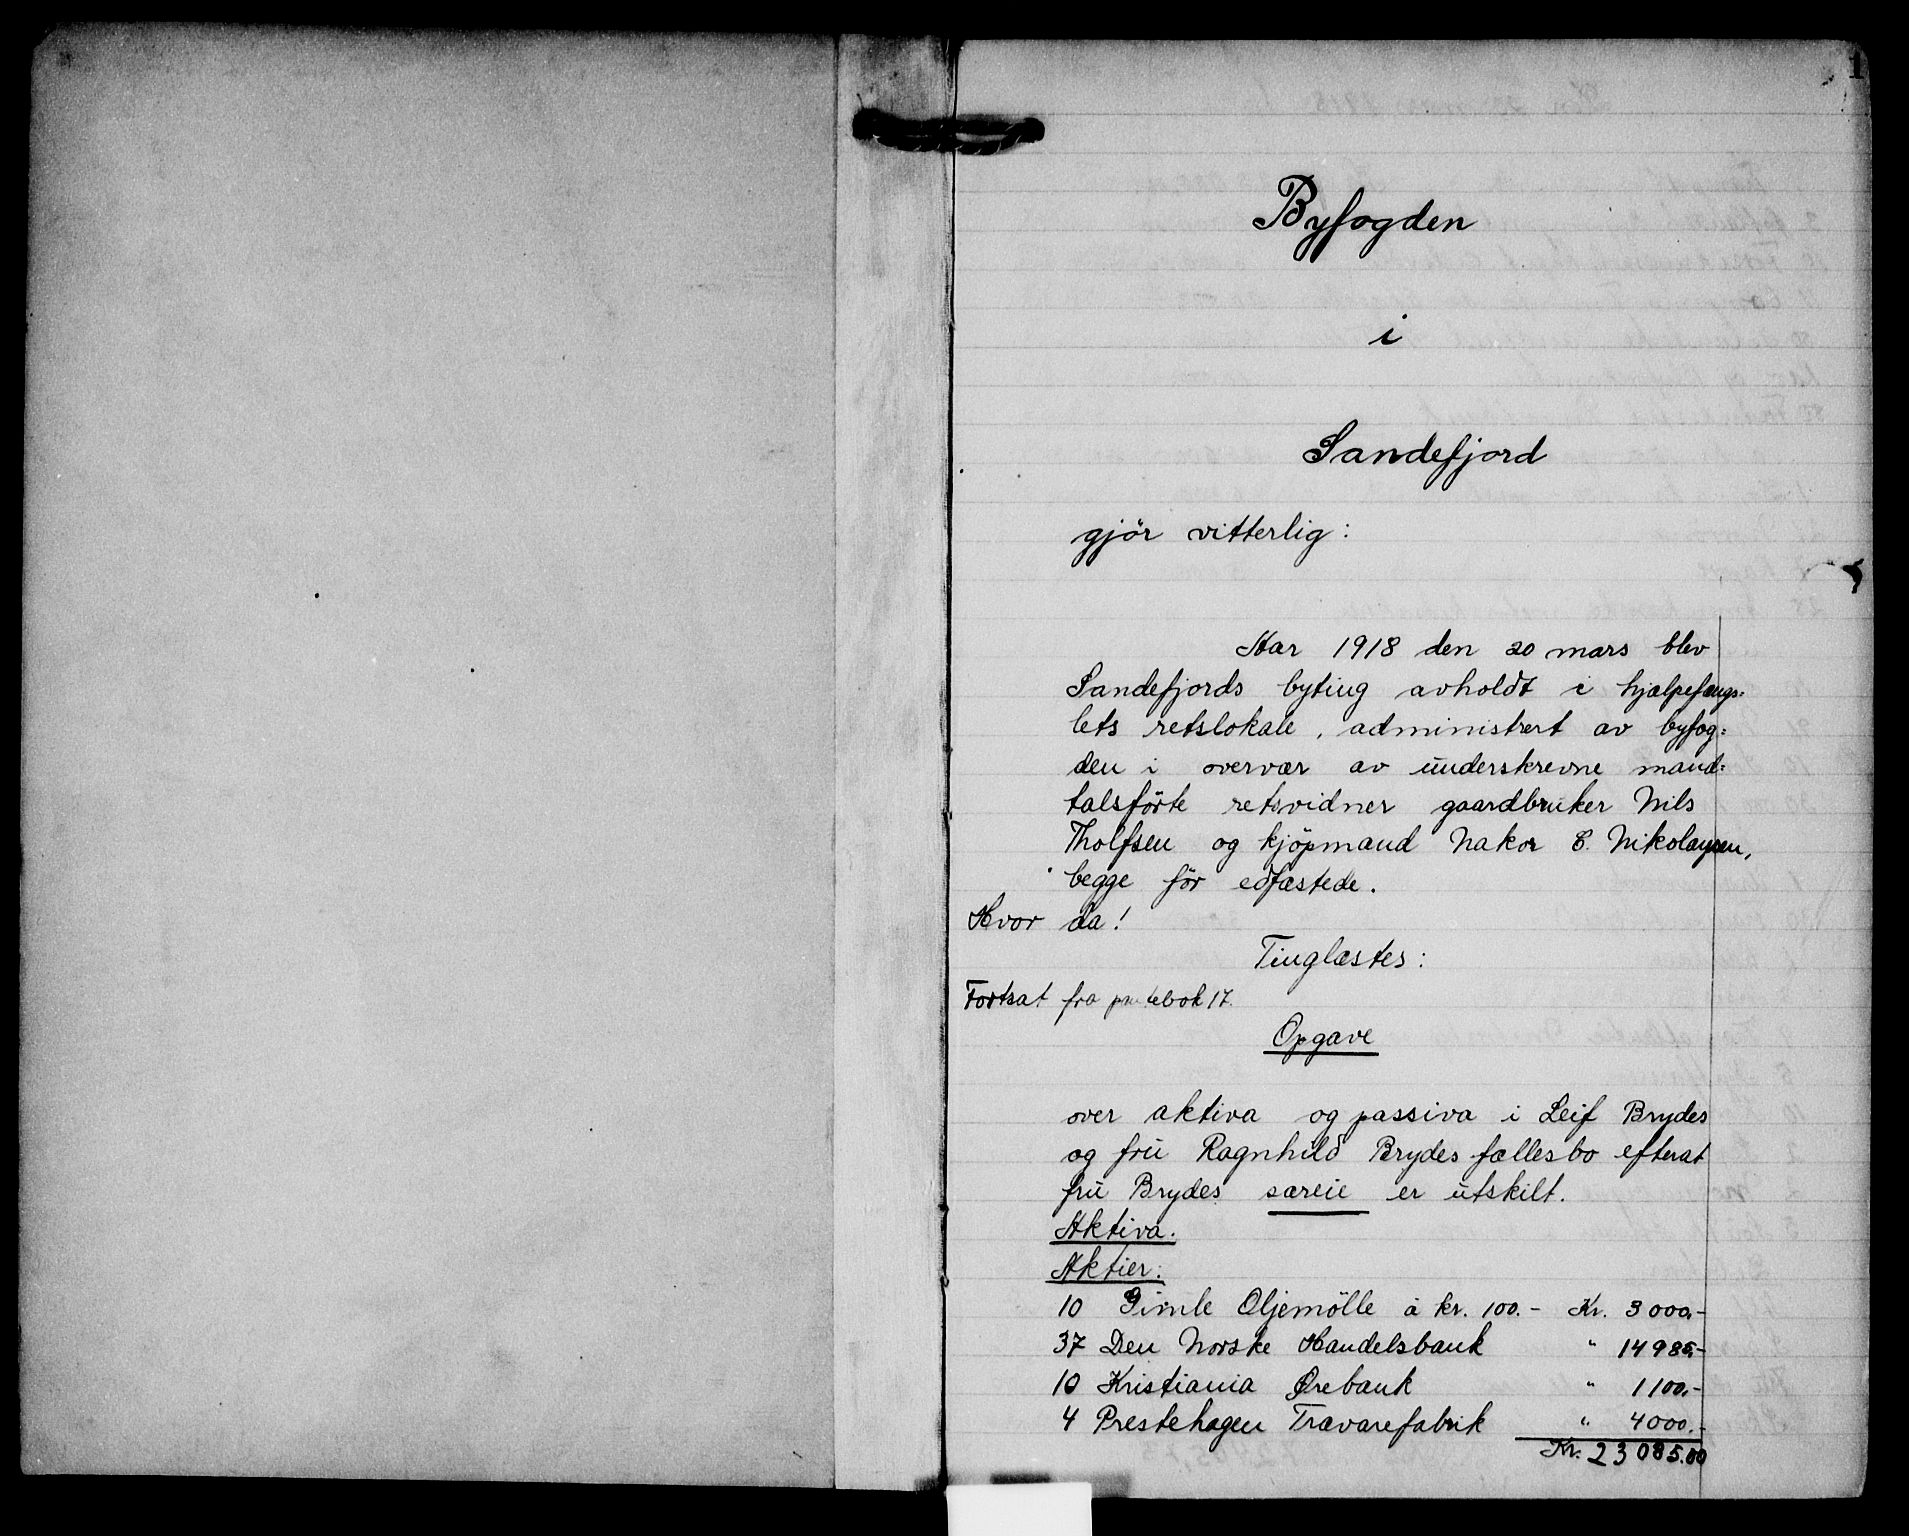 1
Byfogden
i
Sandefjord
gjör vitterlig:
Aar 1918 den 20 mars blev
Sandefjords byting avholdt i hjælpefængs=
lets retslokale, administrert av byfog=
den i overvær av underskrevne mand=
talsförte retsvidner gaardbruker Nils
Tholfsen og kjöpmand Hakon C. Nikolaysen,
begge för edfæstede.
Hvor da!
Tinglæstes:
Fortsat fra pantebok 17.
Opgave
over aktiva og passiva i Leif Brydes
og fru Ragnhild Brydes fællesbo efterat
fru Brydes særeie er utskilt.
Aktiva.
Aktier:
10 Gimle Oljemölle á kr. 100.- Kr. 3 000,-
37 Den Norske Handelsbank " 14 985,-
10 Kristiania Ørebank " 1 100,-
4 Prestehagen Trævarefabrik " 4 000.-
Kr. 23 085.00